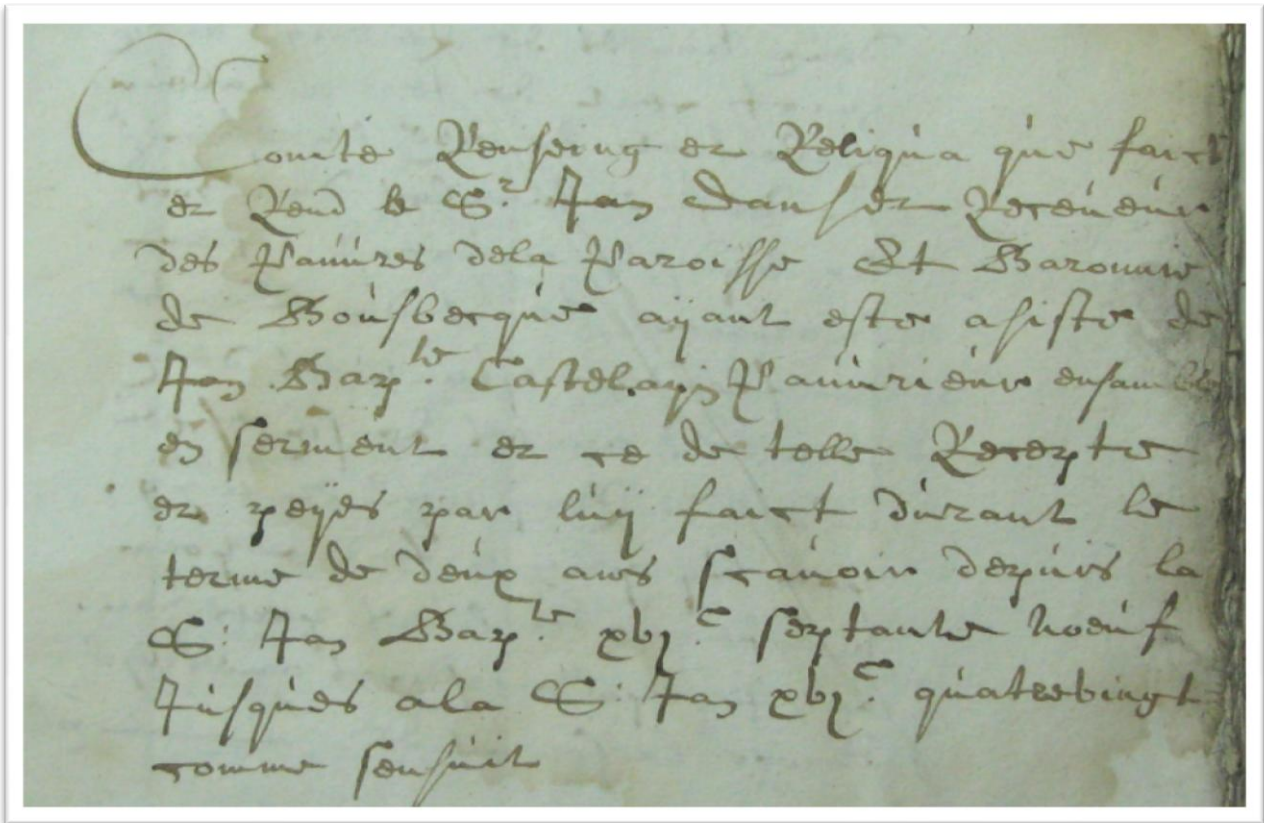 Comte Renseing et Reliqua que faict
et Rend le Sr. Jan Danset Receveur
des Pauures dela Paroisse Et Baronnie
de Bousbecque aÿant este asiste de
Jan Bapte. Castelayn Pauurieur ensamble
en serment et ce de telle Recepte
et peÿes par luÿ faict durant le
terme de deux ans scauoir depuis la
S: Jan Bapte. xvjc septante noeuf
Jusques ala S: Jan xvjc quatrevingt
comme sensuit